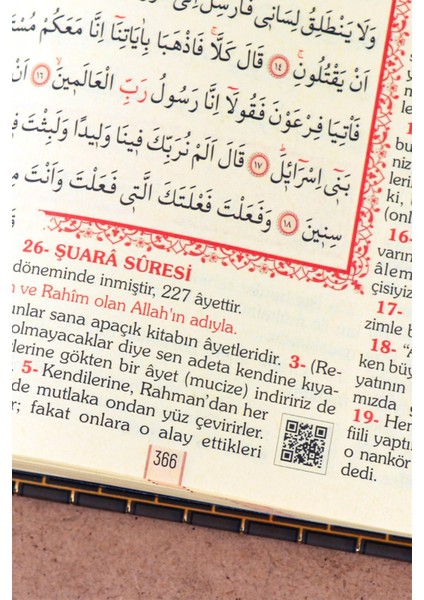 وَلَا يَنْطَلِقُ لِسَانٖي فَاَرْسِلْ اِلٰى
اَنْ يَقْتُلُونِۚ ﴿١٤﴾ قَالَ كَلَّاۚ فَاذْهَبَا بِاٰيَاتِنَٓا اِنَّا مَعَكُمْ
فَأْتِيَا فِرْعَوْنَ فَقُولَٓا اِنَّا رَسُولُ رَبِّ الْعَالَمٖينَۙ ﴿١٦﴾ اَنْ
بَنٖٓي اِسْرَٓائٖيلَۜ ﴿١٧﴾ قَالَ اَلَمْ نُرَبِّكَ فٖينَا وَلٖيدًا وَلَبِثْتَ
سِنٖينَۙ ﴿١٨﴾ وَفَعَلْتَ فَعْلَتَكَ الَّتٖي فَعَلْتَ وَاَنْتَ
26- ŞUARÂ SÛRESİ
döneminde inmiştir, 227 âyettir.
ve Rahîm olan Allah'ın adıyla.
nlar sana apaçık kitabın âyetleridir. 3- (Re-
olmayacaklar diye sen adeta kendine kıya-
erine gökten bir âyet (mucize) indiririz de
5- Kendilerine, Rahman'dan her
de mutlaka ondan yüz çevirirler.
r; fakat onlara o alay ettikleri
366
bu
niz
leri
ki,
(onl
16-
varın
âlem
çisiyiz
17-
zimle b
18- "A
ken büy
yatının
mızda ş
19- Her
fiili yaptı
o nankör
dedi.